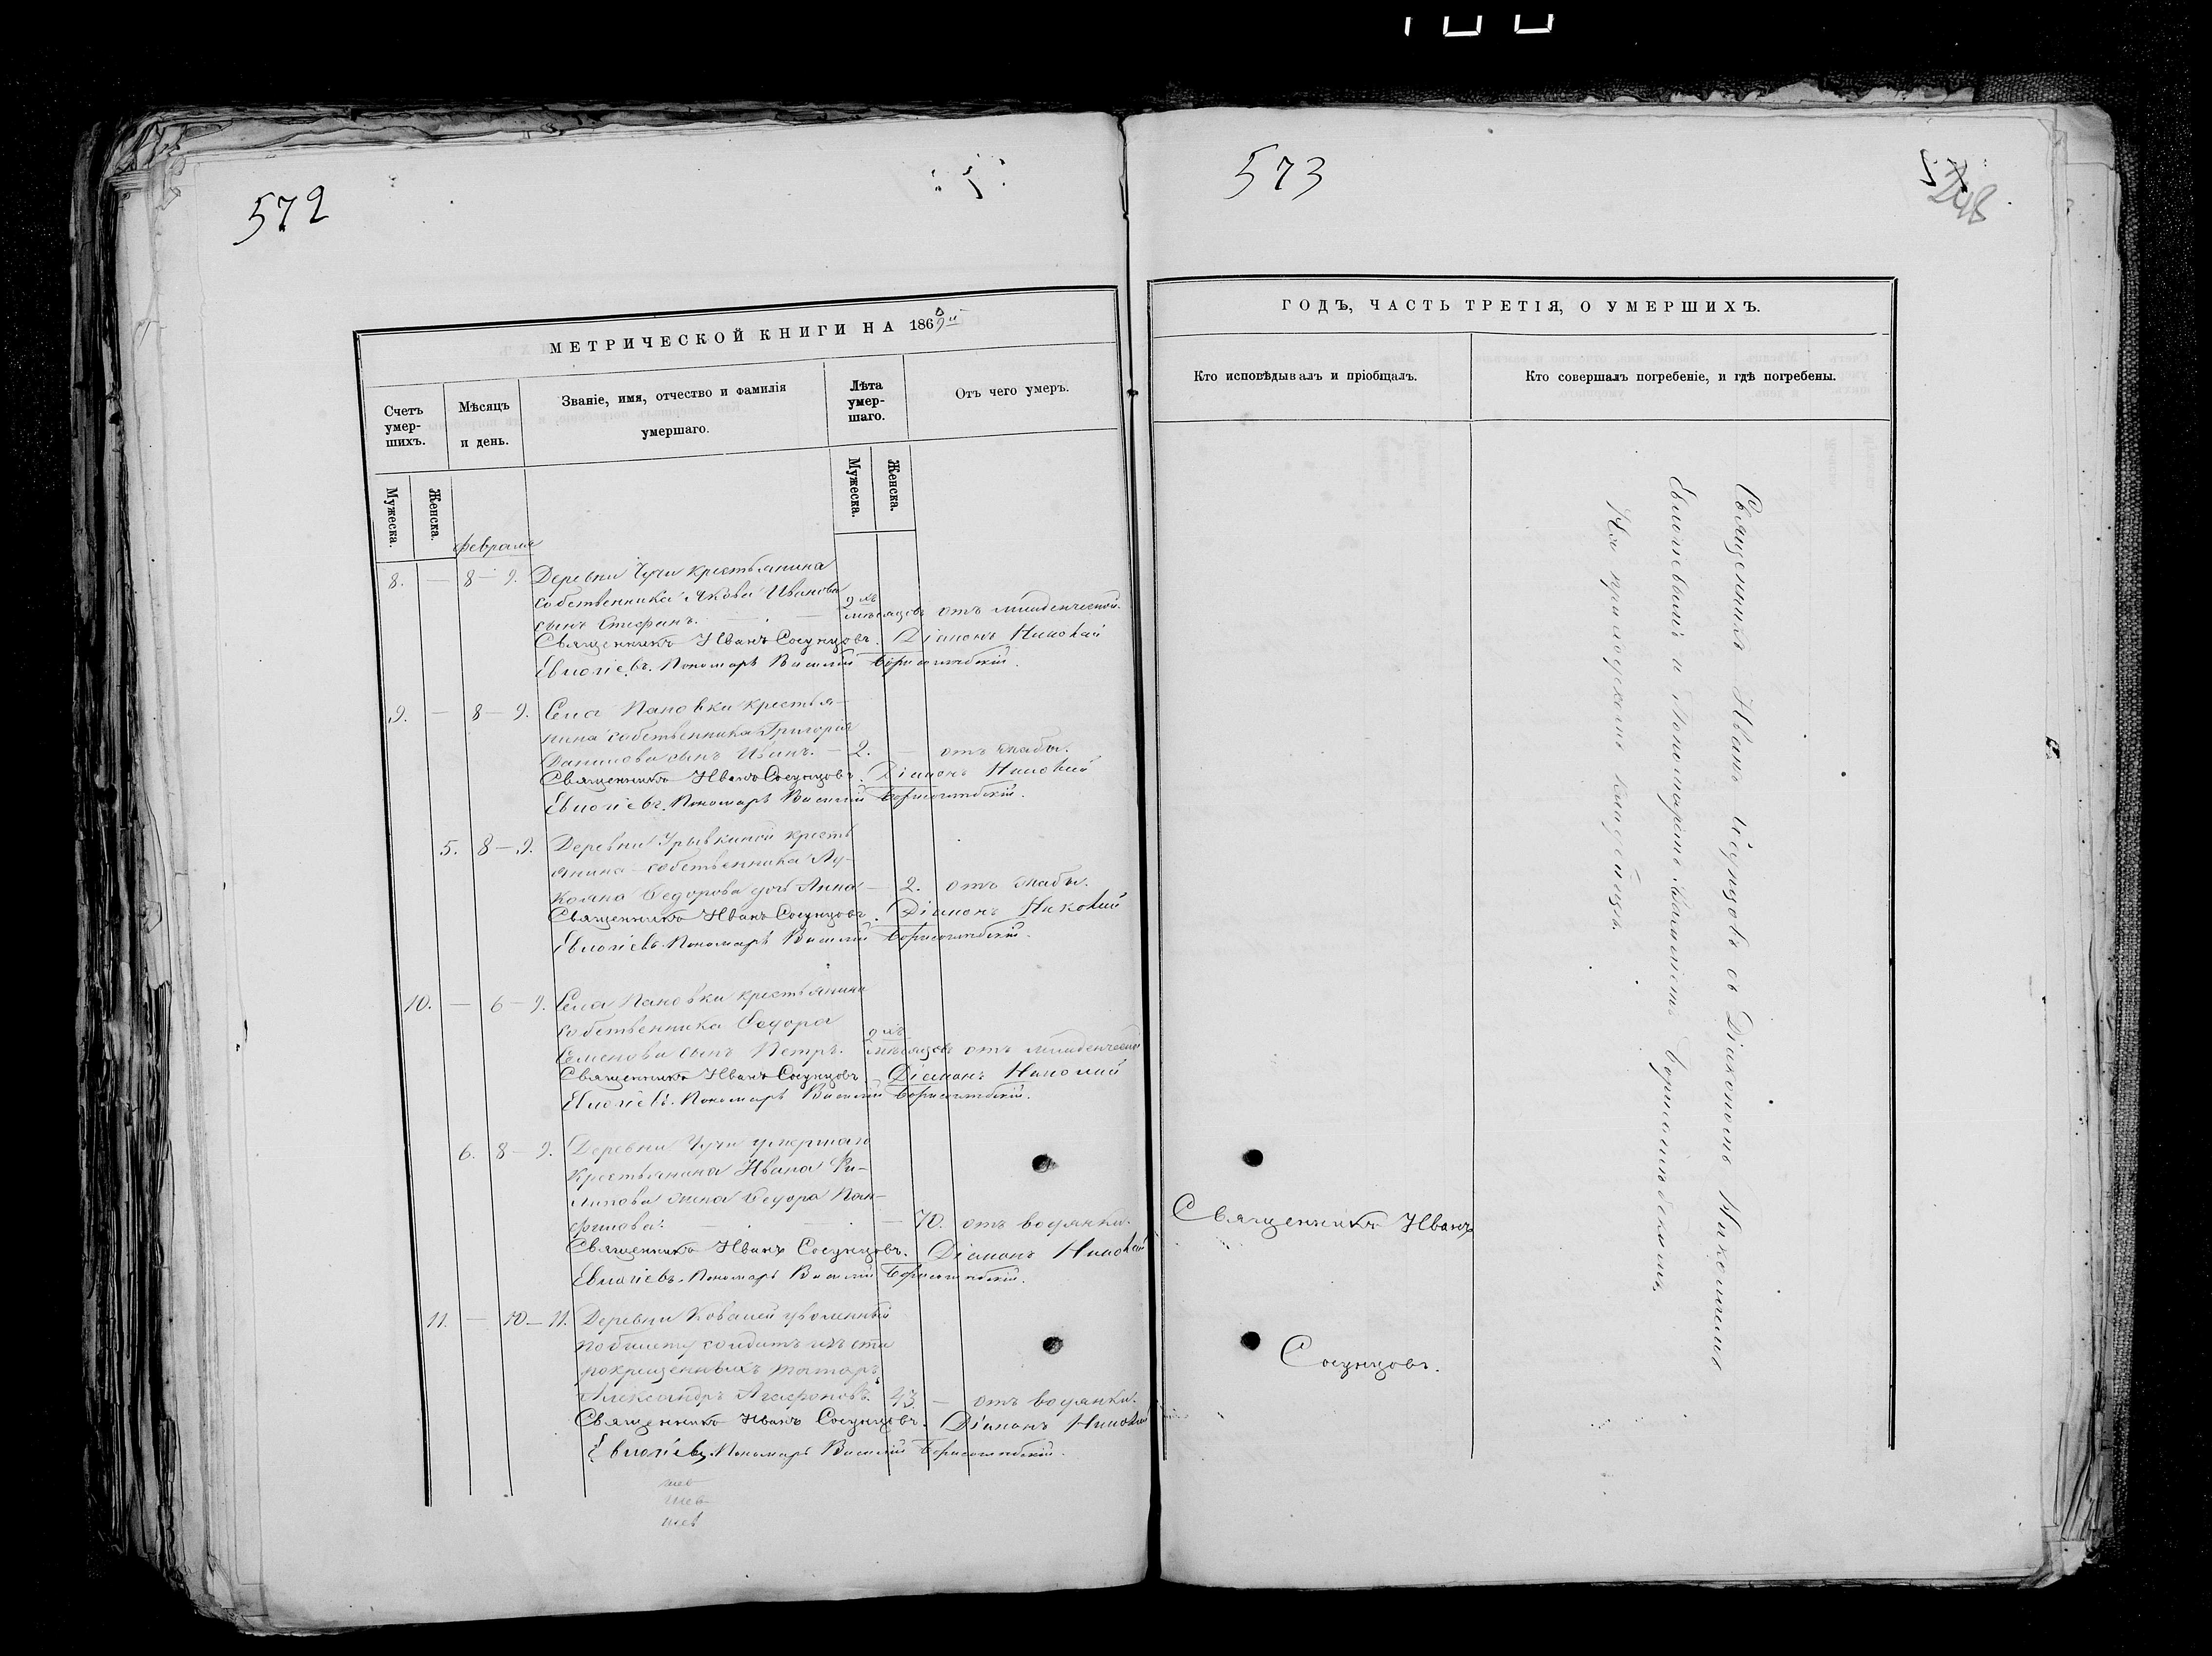 572
МЕТРИЧЕСКОЙ КНИГИ НА 1869й
Счетъ умершихъ.
Мѣсяцъ и день.
Званіе, имя, отчество и фамилія умершаго.
Лѣта умершаго.
Отъ чего умеръ.
Мужеска.
Женска.
Мужеска.
Женска.
Февраля
8. — 8 — 9. Деревни Чучи крестьянина
собственника Якова Иванова
сынъ Стефанъ. 9 мѣсяцовъ отъ младенческой.
Священникъ Иванъ Сосунцовъ. Діаконъ Николай
Евлогіевъ. Пономарь Василій Борисоглѣбскій.
9. — 8 — 9. Села Пановки крестья-
нина собственника Григорія
Данилова сынъ Иванъ. — 2. — отъ жабы.
Священникъ Иванъ Сосунцовъ. Діаконъ Николай
Евлогіевъ. Пономарь Василій Борисоглѣбскій.
5. 8 — 9. Деревни Урывкиной кресть
янина — собственника Лу-
кояна Федорова дочь Анна — 2. отъ жабы.
Священникъ Иванъ Сосунцовъ. Діаконъ Николай
Евлогіевъ. Пономарь Василій Борисоглѣбскій.
10. — 6 — 9. Села Пановки крестьянина
собственника Федора
Семенова сынъ Петръ. 9 мѣсяцовъ отъ младенческой
Священникъ Иванъ Сосунцовъ. Діаконъ Николай
Евлогіевъ. Пономарь Василій Борисоглѣбскій.
6. 8 — 9. Деревни Чучи умершаго
крестьянина Ивана Фи-
липова жена Федора Пан-
филова. — 70. отъ водянки.
Священникъ Иванъ Сосунцовъ. Діаконъ Николай
Евлогіевъ. Пономарь Василій Борисоглѣбскій.
11. — 10 — 11. Деревни Ковалей уволенный
по билету солдатъ изъ ста
рокрещенныхъ татаръ
Александръ Агафоновъ. 43. — отъ водянки.
Священникъ Иванъ Сосунцовъ. Діаконъ Николай
Евлогіевъ. Пономарь Василій Борисоглѣбскій.
573
ГОДЪ, ЧАСТЬ ТРЕТІЯ, О УМЕРШИХЪ.
Кто исповѣдывалъ и пріобщалъ.
Кто совершалъ погребеніе, и гдѣ погребены.
Священникъ Иванъ
Сосунцовъ.
Священникъ Иванъ Сосунцовъ съ Діакономъ Николаемъ
Евлогіевымъ и Пономаремъ Василіемъ Борисоглѣбскимъ.
На приходскомъ кладбищѣ.